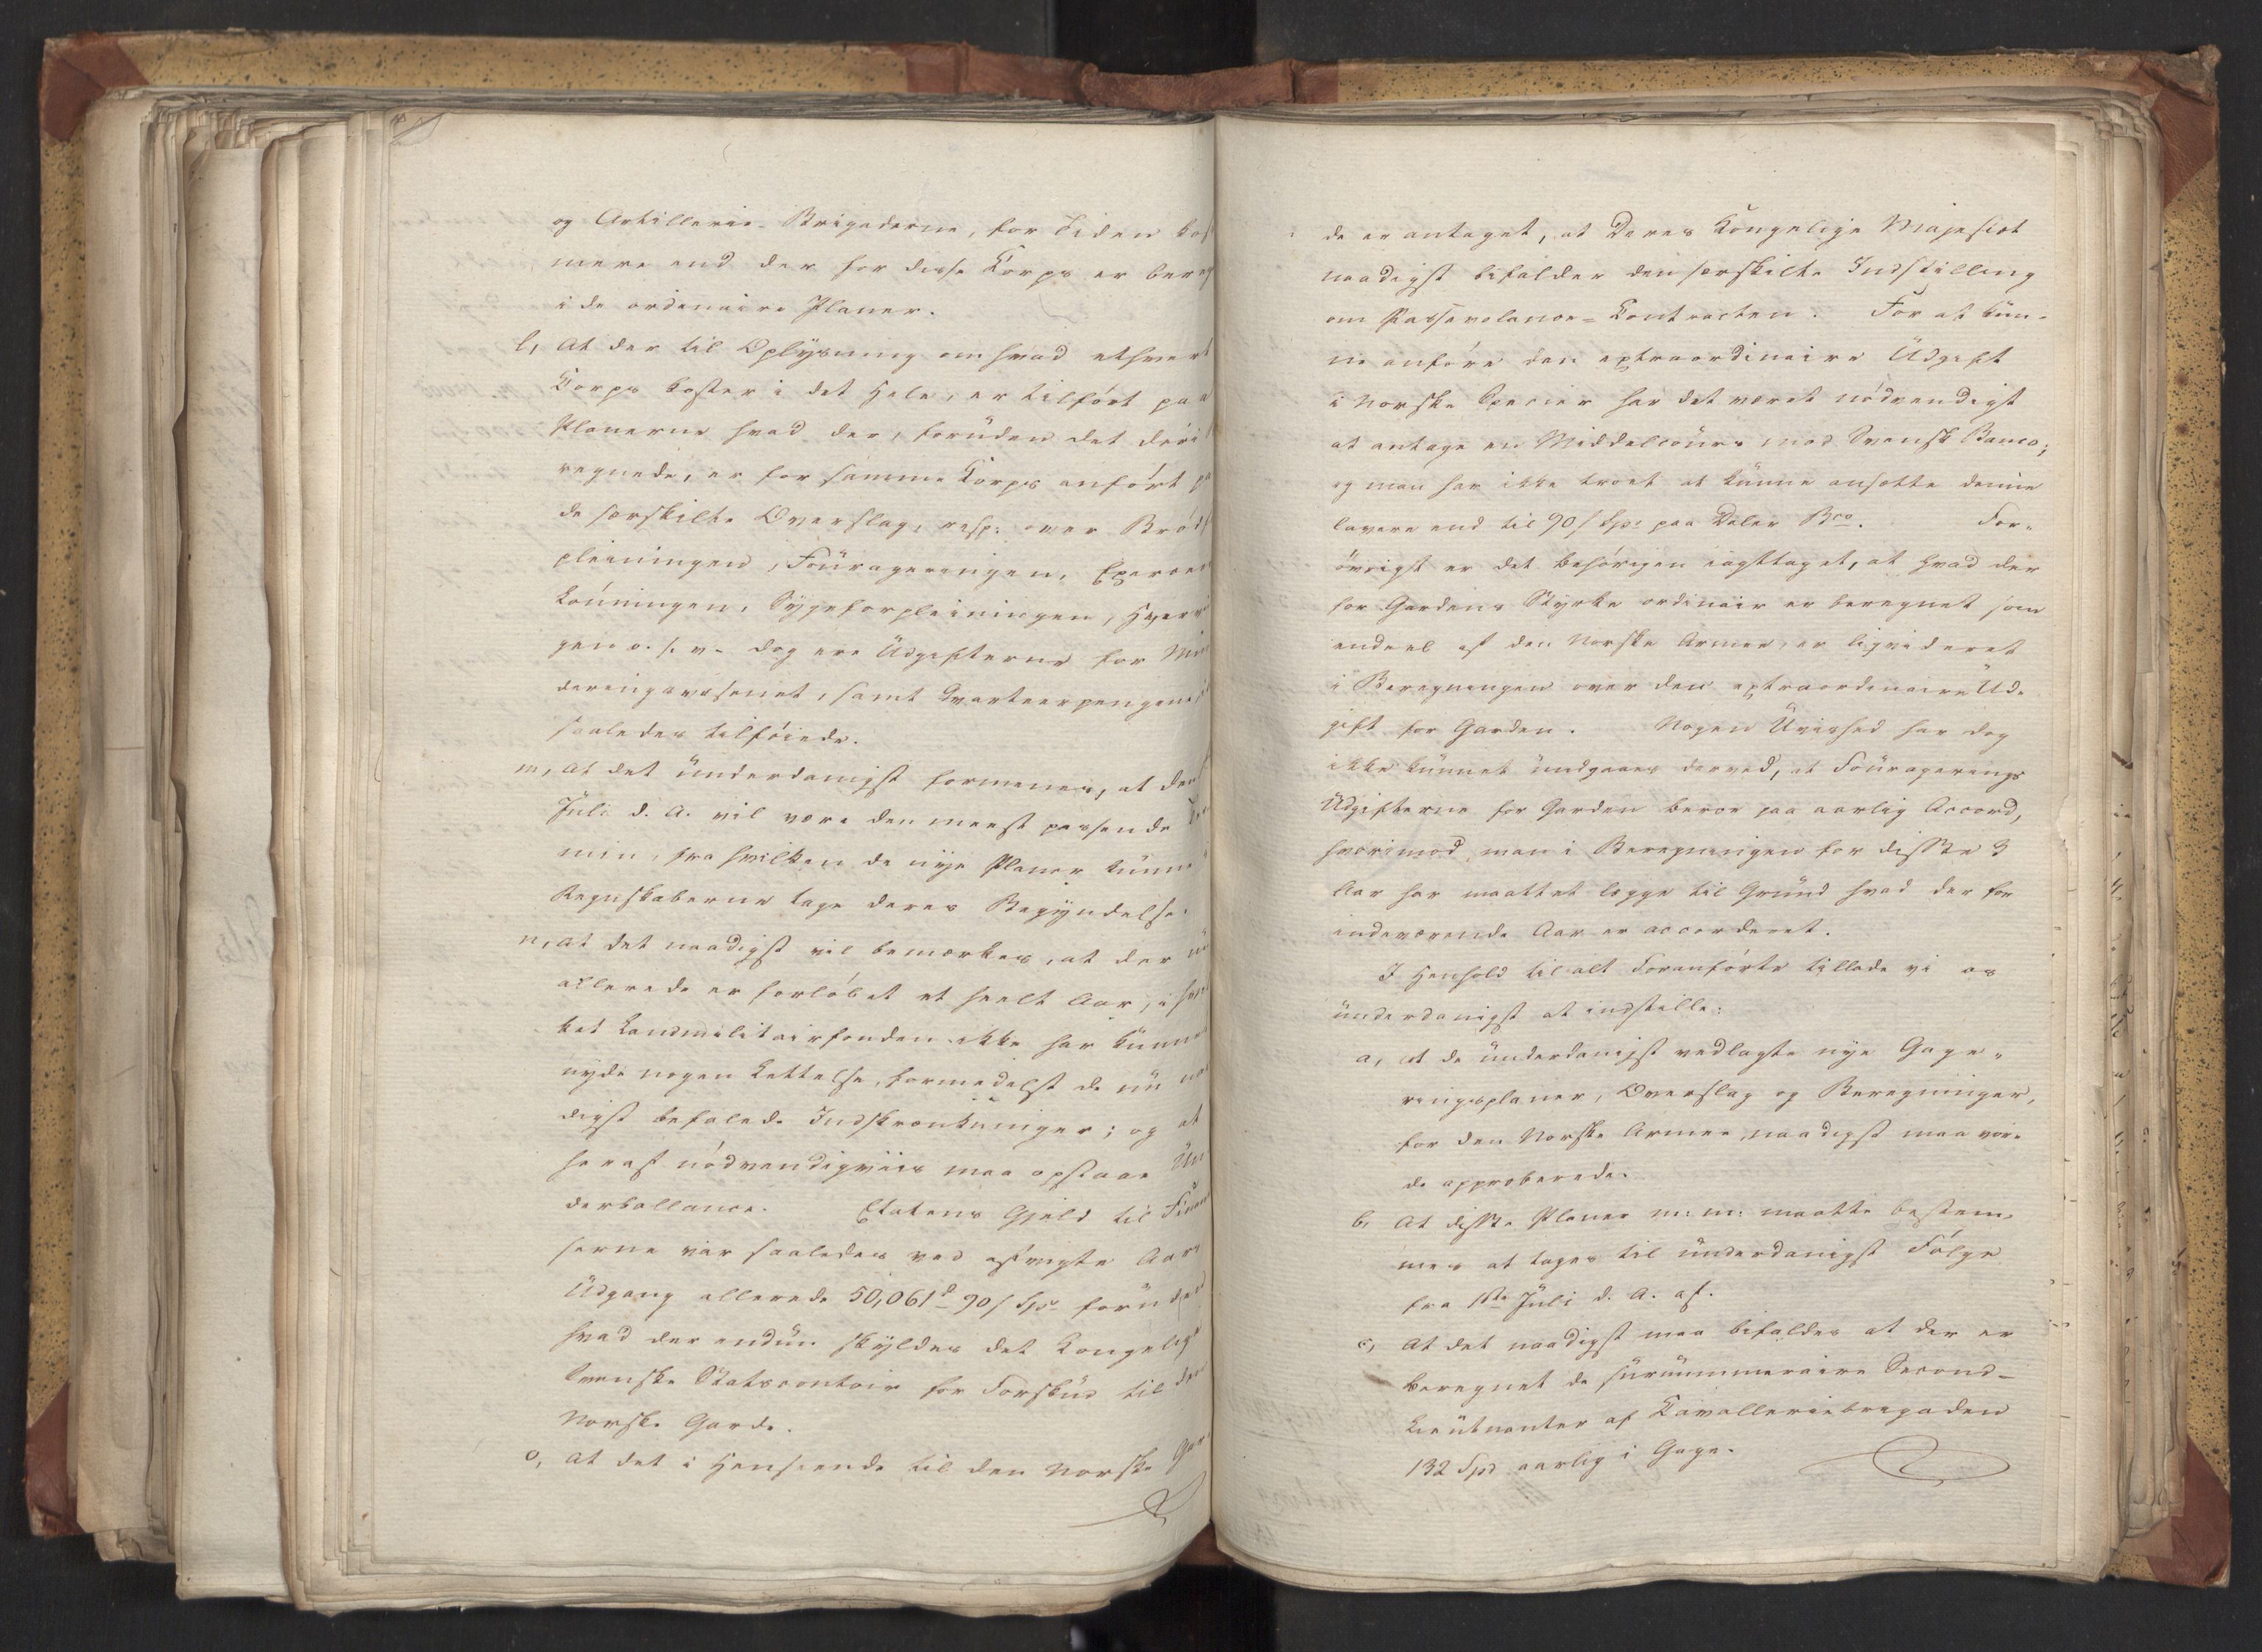 og Artillerie-Brigaderne, for Tiden kos
mere end der for disse Korps er bereg
i de ordinaire Planer.
l, At der til Oplÿsning om hvad ethvert
Korps koster i det Hele, er tilført paa
Planerne hvad der, foruden det deri
regnede, er for samme Korps anført p
de særskilte Overslag, resp: over Brødf
pleiningen, Fourageringen, Exercer
Sÿgeforpleiningen, Hverv
gen o. s. v. dog ere Udgifterne for Mun
deringsvæsenet, samt Qvarteerpengene,
saaledes tilføiede.
m, at det underdanigst formenes, at den
Juli d. A. vil være den meest passende Ter
min, fra hvilken de nÿe Planer kunne i
Regnskaberne tage deres Begÿndelse.
n, at det naadigst vil bemærkes, at der nu
allerede er forløbet et heelt Aar, i hvil
ket Landmilitairfonden ikke har kunne
nyde nogen Lettelse, formedelst de nu naa
digst befalede Indskrænkninger; og at
heraf nødvendigviis maa opstaae Un
derballance. Etatens Gjeld til Finan
serne var saaledes ved afvigte Aars
Udgang allerede 50,061 d 90 s Spe foruden
hvad der endnu skÿldes det Kongelige
Svenske Statscontoir for Forskud til den
Norske Garde.
o, at det i Henseende til den Norske Gar-
de er antaget, at Deres Kongelige Majestæt
naadigst bifalder den særskilte Indstilling
om Passevolance-Contracten. For at kun-
ne anføre den extraordinaire Udgift
i Norske Specier har det været nødvendigt
at antage en Middelcours mod Svensk Banco;
og man har ikke troet at kunne ansætte denne
lavere end til 90 s Spe paa Daler Bco. For-
øvrigt er det behørigen iagttaget, at hvad der
for Gardens Styrke ordinair er beregnet som
endeel af den Norske Armee, er liqvideret
i Beregningen over den extraordinaire Ud-
gift for Garden. Nogen Uvished har dog
ikke kunnet undgaaes derved, at Fouragerings
Udgifterne for Garden beroe paa aarlig Accord,
hvorimod man i Beregningen for disse 3
Aar har maattet lægge til Grund hvad der for
indeværende Aar er accorderet.
I Henhold til alt Foranførte tillade vi os
underdanigst at indstille:
a, at de underdanigst vedlagte nye Gage-
ringsplaner, Overslag og Beregninger,
for den Norske Armee, naadigst maa vor-
de approberede.
b, At disse Planer m: m: maatte bestem-
mes at tages til underdanigst Følge
fra 1ste Juli d. A. af.
c, At det naadigst maa bifaldes at der er
beregnet de surnummeraire Second-
Lieutnanter af Cavalleriebrigaden
132 Spd aarlig i Gage.